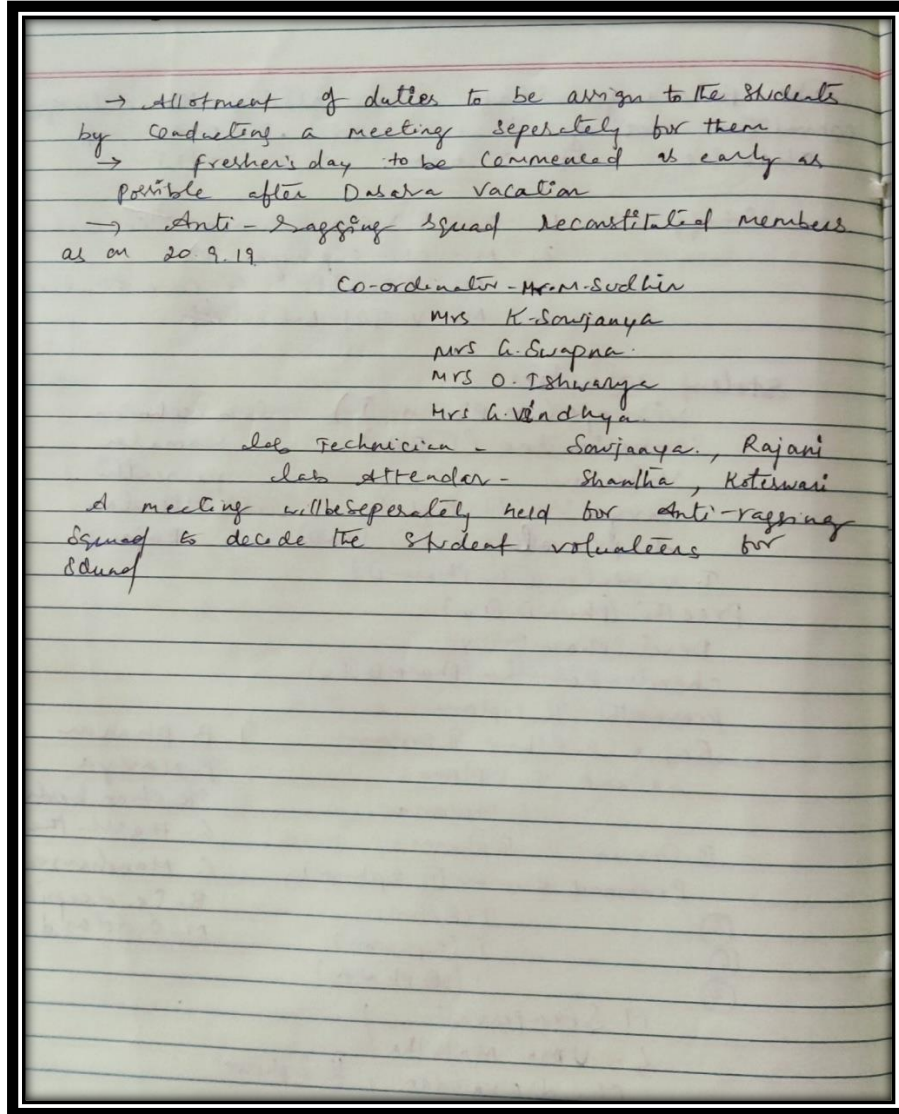 → Allotment of duties to be assign to the Students
by conducting a meeting seperately for them
→ fresher's day to be Commenced as early as
possible after Dasara vacation
→ Anti-ragging squad reconstituted members
as on 20.9.19
Co-ordinator - Mr. M. Sudhir
Mrs K. Sowjanya
Mrs G. Swapna.
Mrs O. Ishwarya
Mrs G. Vindhya
Lab Technician - Sowjanya., Rajani
Lab Attendar - Shantha, Koteswari
A meeting will be seperately held for Anti-ragging
Squad to decide the Student volunteers for
Squad